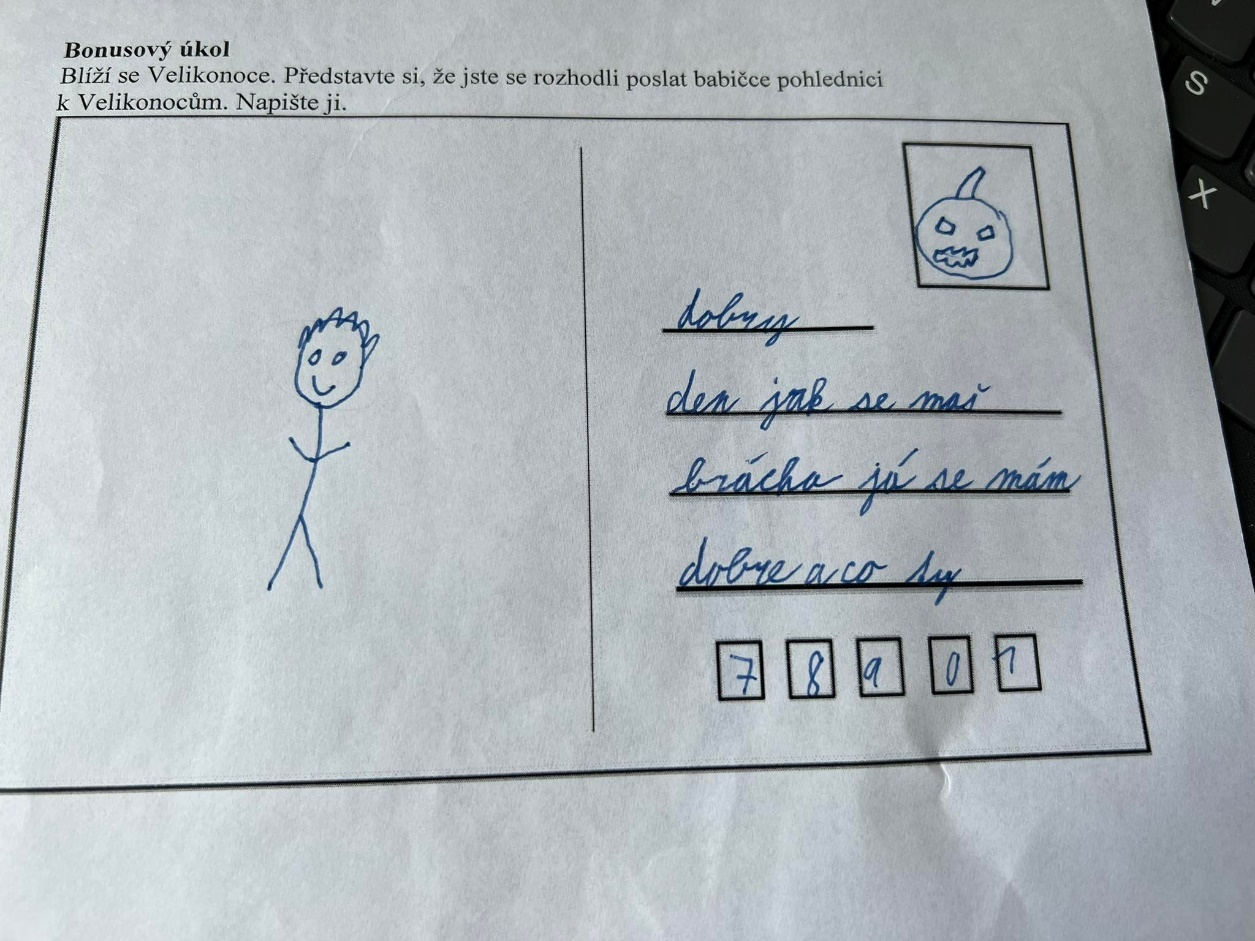 Bonusový úkol
Blíží se Velikonoce. Představte si, že jste se rozhodli poslat babičce pohlednici
k Velikonocům. Napište ji.
dobry
den jak se maš
brácha já se mám
dobre a co ty
7 8 9 0 1
S
X